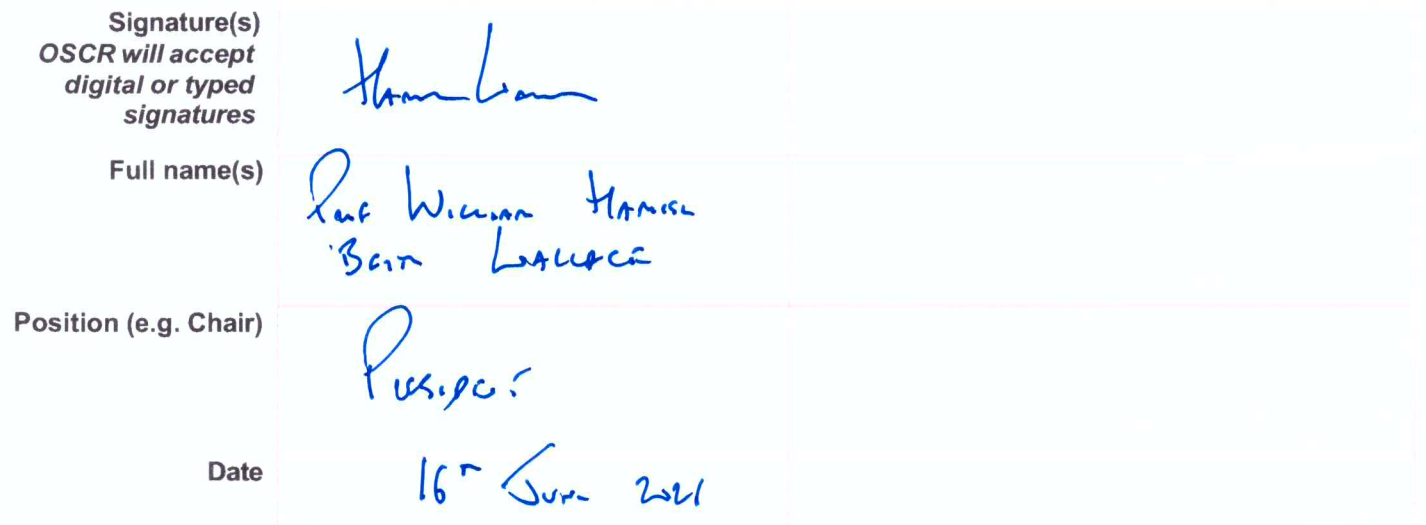 Signature(s)
OSCR will accept
digital or typed
signatures
Full name(s)
Prof William Hamish
Wallace
Position (e.g. Chair)
President
Date
16th June 2021